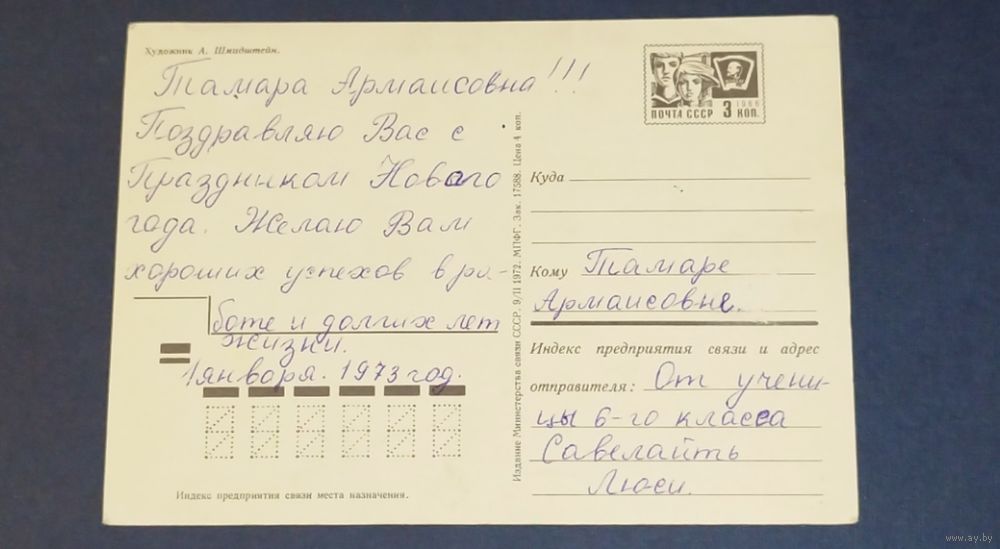 Художник А. Шмидштейн.
Тамара Армаисовна!!!
Поздравляю Вас с
Праздником Нового
года. Желаю Вам
хороших успехов в ра-
боте и долгих лет
жизни.
1 января. 1973 год.
Индекс предприятия связи места назначения.
Издание Министерства связи СССР. 9/II 1972. МПФГ. Зак. 17588. Цена 4 коп.
1966
ПОЧТА СССР 3 КОП.
Куда
Кому Тамаре
Армаисовне.
Индекс предприятия связи и адрес
отправителя: От учени-
цы 6-го класса
Савелайть
Люси.
www.ay.by